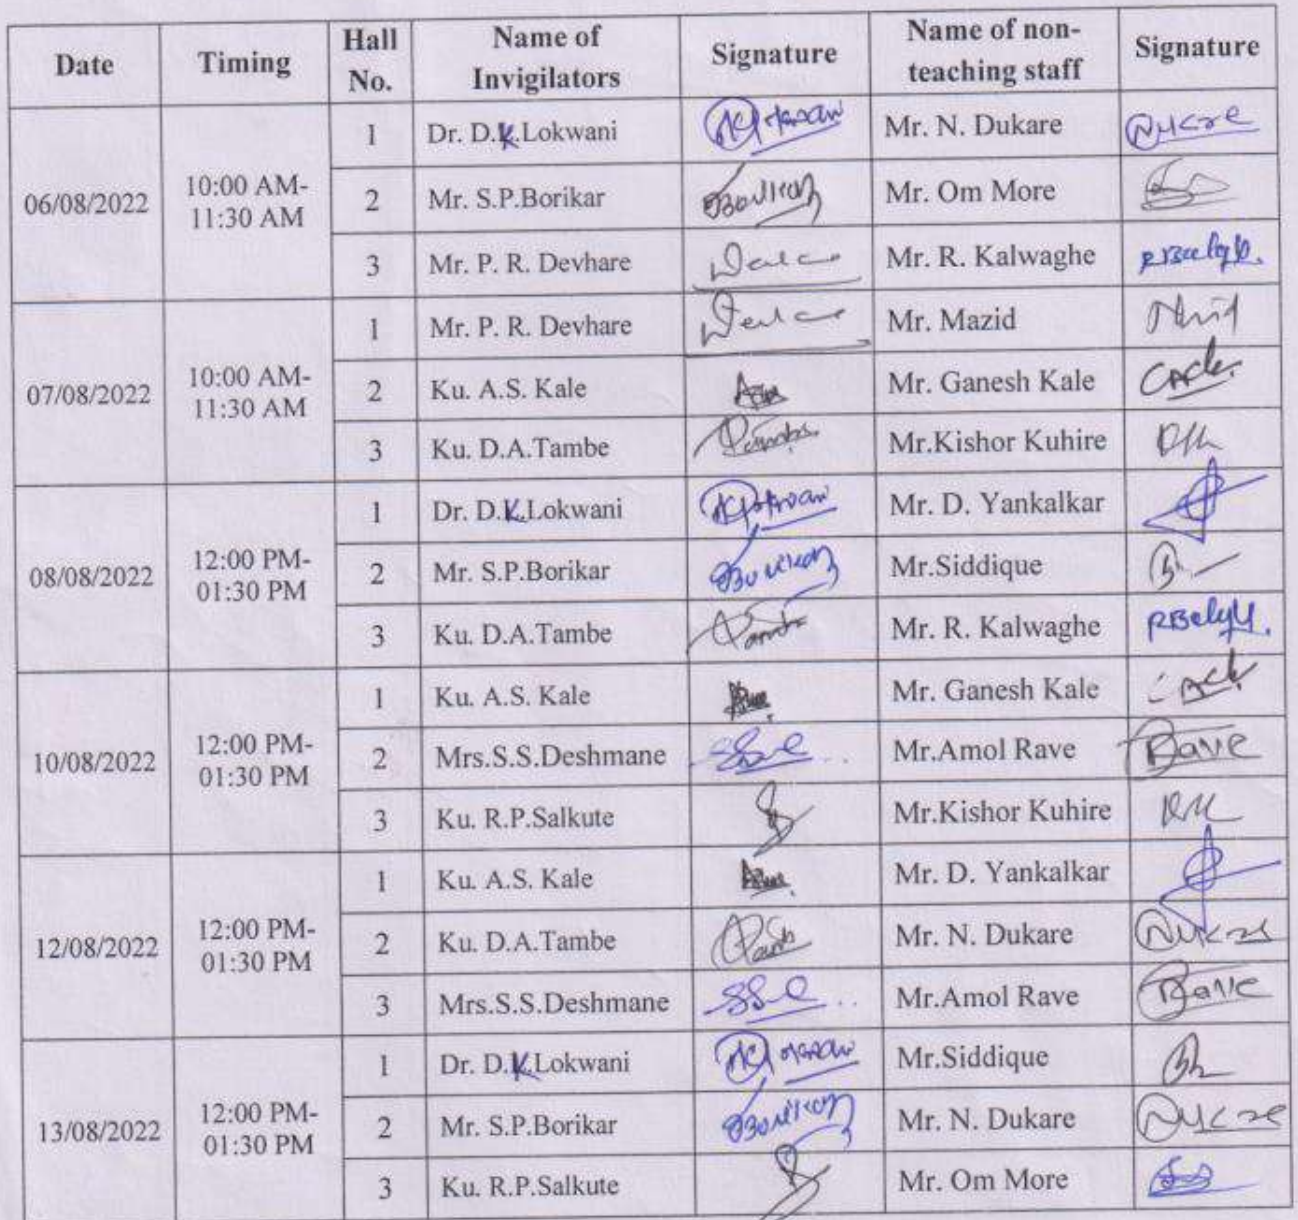 Date Timing Hall No. Name of Invigilators Signature Name of non-teaching staff Signature
06/08/2022 10:00 AM-11:30 AM 1 Dr. D.K.Lokwani Mr. N. Dukare
2 Mr. S.P.Borikar Mr. Om More
3 Mr. P. R. Devhare Mr. R. Kalwaghe
07/08/2022 10:00 AM-11:30 AM 1 Mr. P. R. Devhare Mr. Mazid
2 Ku. A.S. Kale Mr. Ganesh Kale
3 Ku. D.A.Tambe Mr.Kishor Kuhire
08/08/2022 12:00 PM-01:30 PM 1 Dr. D.K.Lokwani Mr. D. Yankalkar
2 Mr. S.P.Borikar Mr.Siddique
3 Ku. D.A.Tambe Mr. R. Kalwaghe
10/08/2022 12:00 PM-01:30 PM 1 Ku. A.S. Kale Mr. Ganesh Kale
2 Mrs.S.S.Deshmane Mr.Amol Rave Rave
3 Ku. R.P.Salkute Mr.Kishor Kuhire
12/08/2022 12:00 PM-01:30 PM 1 Ku. A.S. Kale Mr. D. Yankalkar
2 Ku. D.A.Tambe Mr. N. Dukare
3 Mrs.S.S.Deshmane Mr.Amol Rave Rave
13/08/2022 12:00 PM-01:30 PM 1 Dr. D.K.Lokwani Mr.Siddique
2 Mr. S.P.Borikar Mr. N. Dukare
3 Ku. R.P.Salkute Mr. Om More